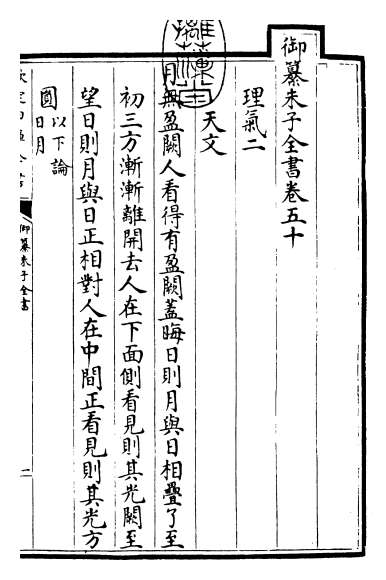 御纂朱子全書卷五十
理氣二
天文
月無盈闕人看得有盈闕蓋晦日則月與日相疊了至
初三方漸漸離開去人在下面側看見則其光闕至
望日則月與日正相對人在中間正看見則其光方
圓以下論日月
御纂朱子全書